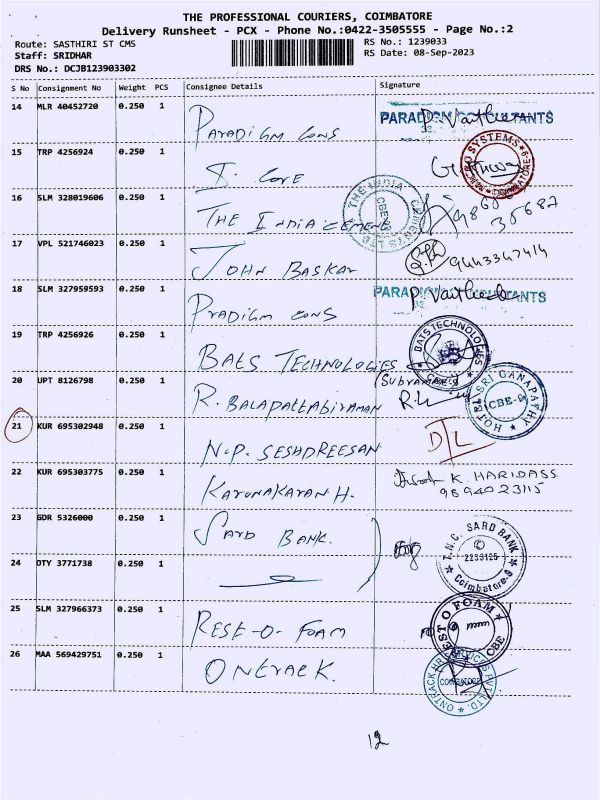 THE PROFESSIONAL COURIERS, COIMBATORE
Delivery Runsheet - PCX - Phone No.:0422-3505555 - Page No.:2
Route: SASTHIRI ST CMS RS No.: 1239033
Staff: SRIDHAR RS Date: 08-Sep-2023
DRS No.: DCJB123903302
S No Consignment No Weight PCS Consignee Details Signature
14 MLR 40452720 0.250 1 PARADIGM CONS
15 TRP 4256924 0.250 1 I. CORE
16 SLM 328019606 0.250 1 THE INDIA CEMENT THE INDIA CEMENTS LTD CBE
17 VPL 521746023 0.250 1 JOHN BASKAR 9443347414
18 SLM 327959593 0.250 1 PRADIGM CONS
19 TRP 4256926 0.250 1 BATS TECHNOLOGIES BATS TECHNOLOGIES
20 UPT 8126798 0.250 1 R. BALAPATTABIRAMAN HOTEL SRI GANAPATHY CBE-9
21 KUR 695302948 0.250 1 N.P. SESHDREESAN D/L
22 KUR 695303775 0.250 1 KARUNAKARAN H. K. HARIDASS
9894023115
23 GDR 5326000 0.250 1 SARD BANK. T.N.C. SARD BANK 2233125 Coimbatore-9
24 OTY 3771738 0.250 1
25 SLM 327966373 0.250 1 REST-O-FOAM REST O FOAM CBE
26 MAA 569429751 0.250 1 ONTRACK. COIMBATORE
12